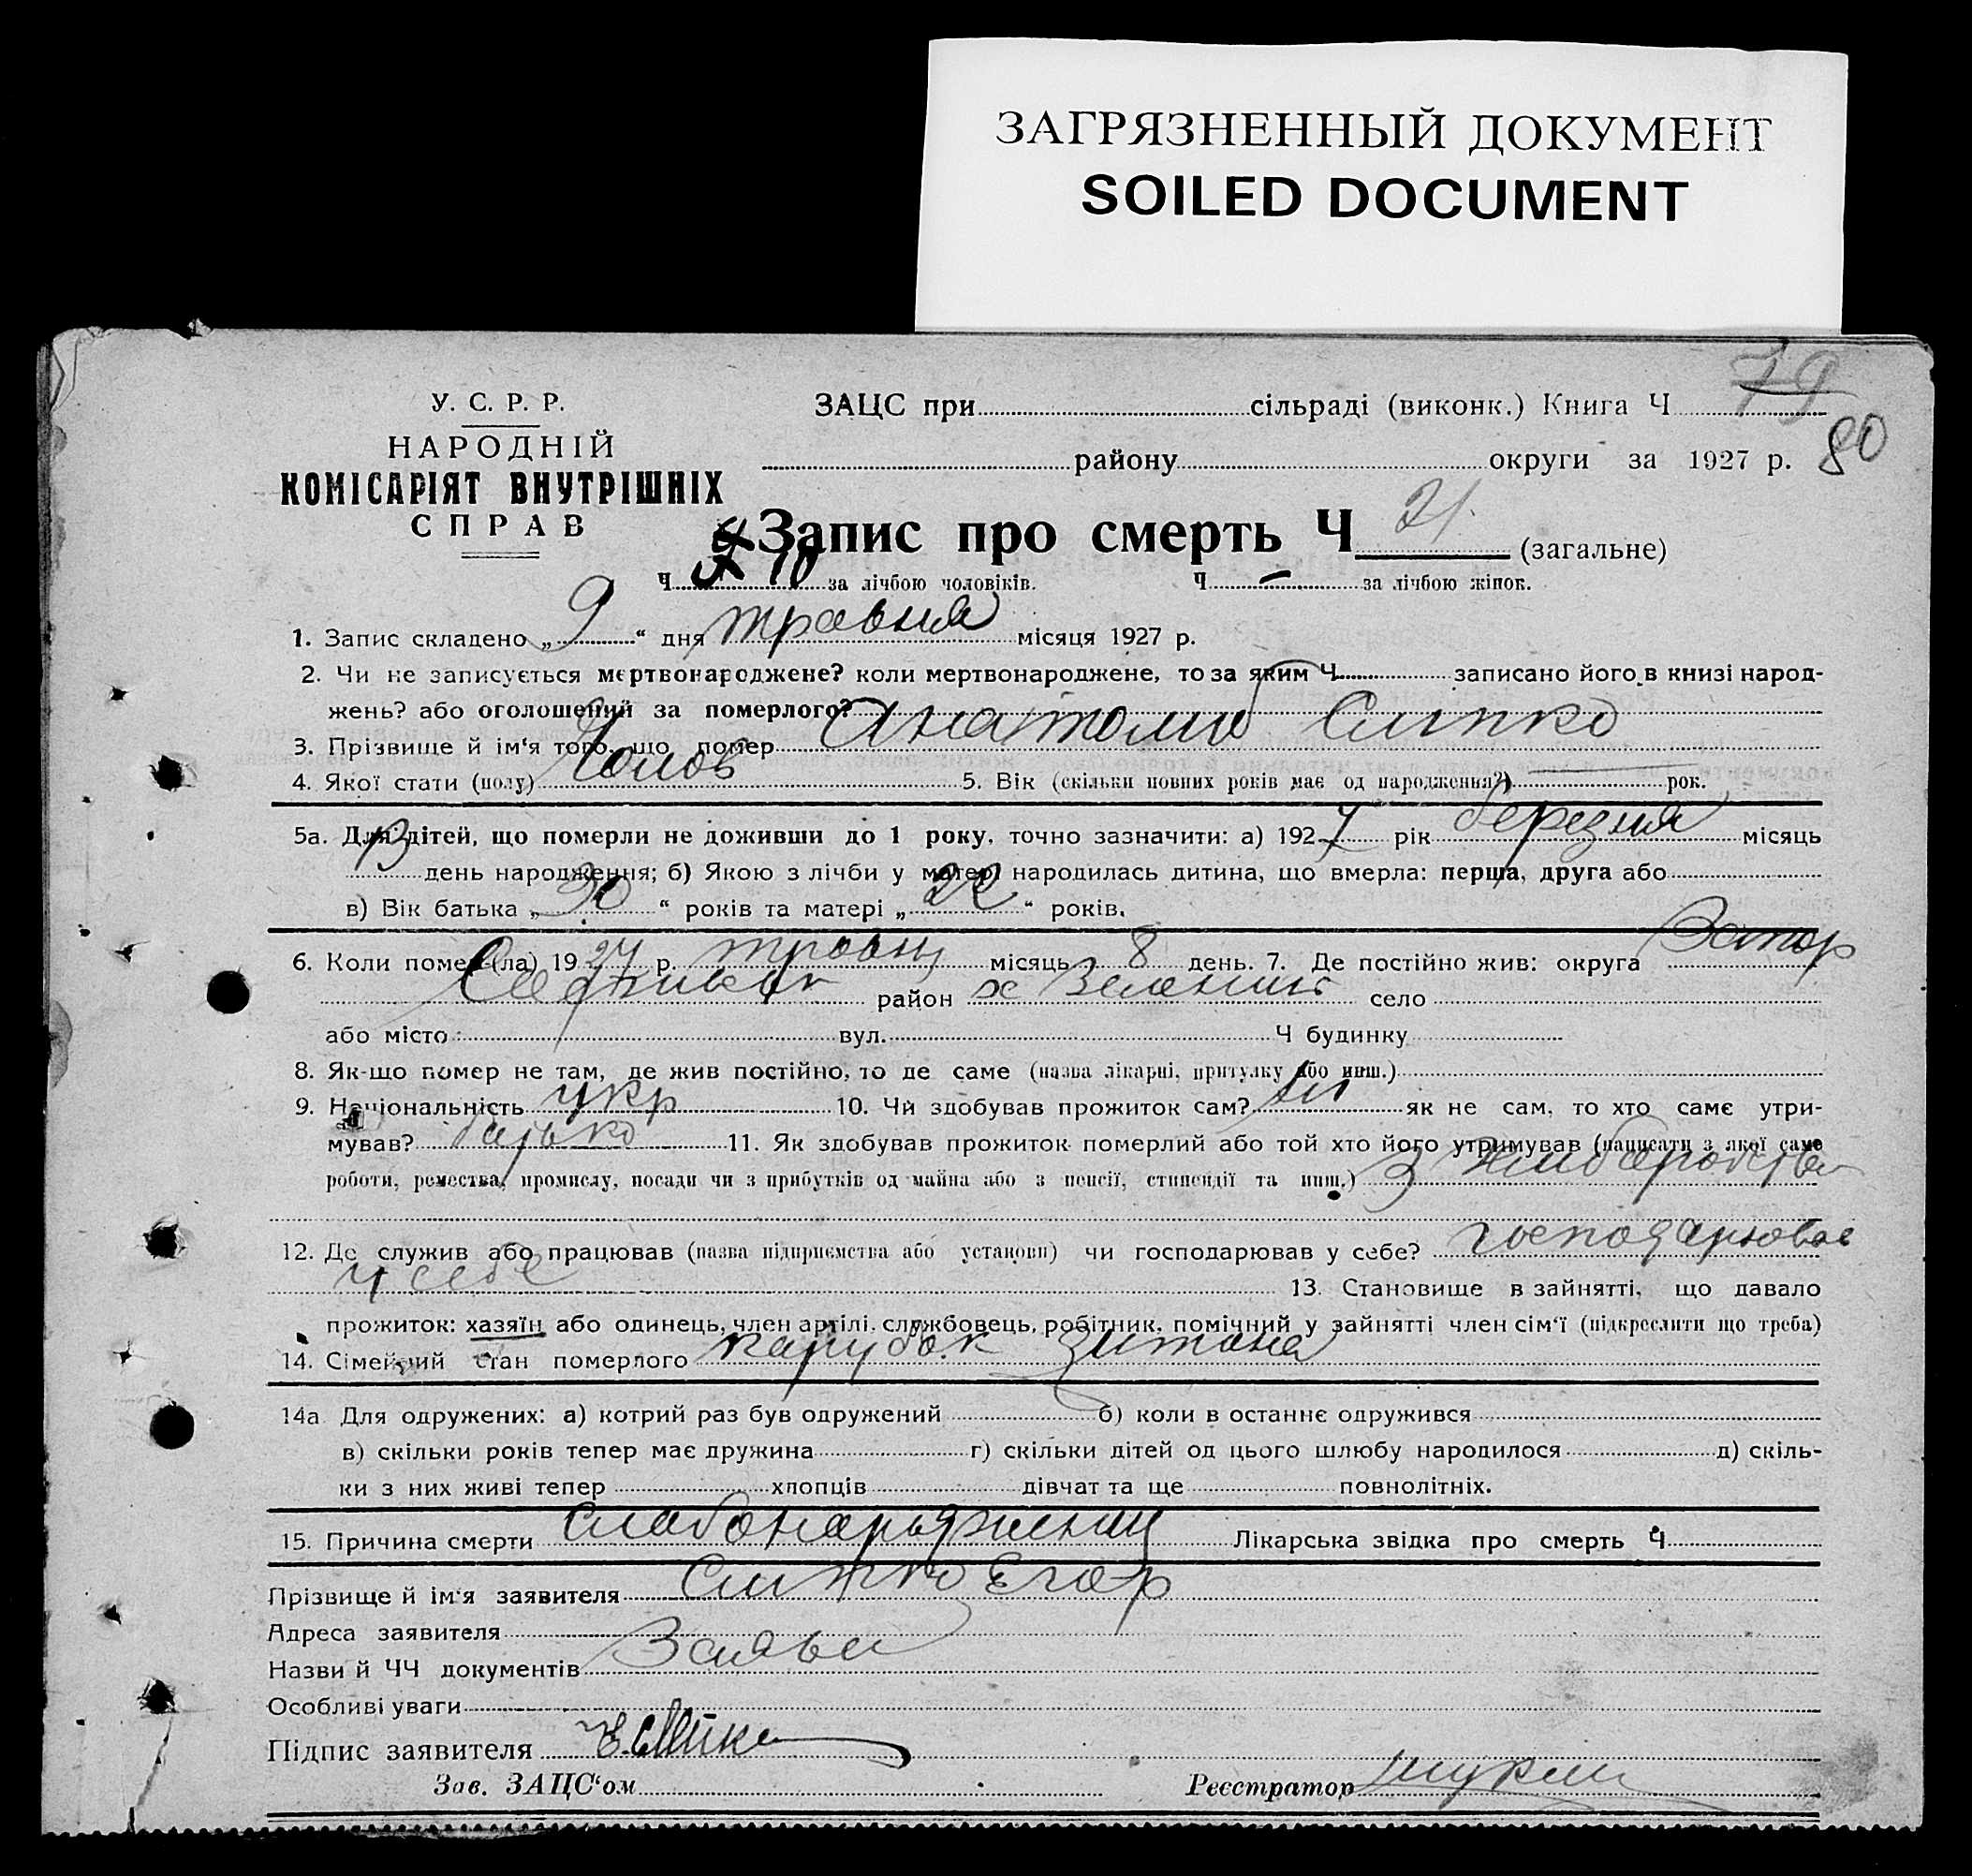 ЗАГРЯЗНЕННЫЙ ДОКУМЕНТ
SOILED DOCUMENT
79
80
У. С. Р. Р.
НАРОДНІЙ
КОМІСАРІЯТ ВНУТРІШНІХ
СПРАВ
ЗАЦС при сільраді (виконк.) Книга Ч
району округи за 1927 р.
Запис про смерть Ч 21. (загальне)
Ч 10 за лічбою чоловіків. Ч — за лічбою жінок.
1. Запис складено „ 9 “ дня травня місяця 1927 р.
2. Чи не записується мертвонароджене? коли мертвонароджене, то за яким Ч записано його в книзі народ-
жень? або оголошений за померлого?
3. Прізвище й ім‘я того, що помер Анатолий Слипко
4. Якої стати (полу) Чолов 5. Вік (скільки повних років має од народження?) — рок.
5а. Для дітей, що померли не доживши до 1 року, точно зазначити: а) 1927 рік березня місяць
день народження; б) Якою з лічби у матері народилась дитина, що вмерла: перша, друга або
в) Вік батька „ 30 “ років та матері „ 22 “ років.
6. Коли помер (ла) 1927 р. травня місяць 8 день. 7. Де постійно жив: округа Запор
район х село
або місто вул. Ч будинку
8. Як-що помер не там, де жив постійно, то де саме (назва лікарні, притулку або инш.)
9. Національність укр 10. Чи здобував прожиток сам? ни як не сам, то хто саме утри-
мував? батько 11. Як здобував прожиток померлий або той хто його утримував (написати з якої саме
роботи, ремества, промислу, посади чи з прибутків од майна або з пенсії, стипендії та инш.) З хлиборобства
12. Де служив або працював (назва підприємства або установи) чи господарював у себе? господарював
у себе 13. Становище в зайнятті, що давало
прожиток: хазяїн або одинець, член артілі, службовець, робітник, помічний у зайнятті член сім‘ї (підкреслити що треба)
14. Сімейний стан померлого парубок
14а Для одружених: а) котрий раз був одружений б) коли в останнє одружився
в) скільки років тепер має дружина г) скільки дітей од цього шлюбу народилося д) скіль-
ки з них живі тепер хлопців дівчат та ще повнолітніх.
15. Причина смерти Лікарська звідка про смерть Ч
Прізвище й ім‘я заявителя Слипко Єгор
Адреса заявителя
Назви й ЧЧ документів
Особливі уваги
Підпис заявителя
Зав. ЗАЦС‘ом Реєстратор